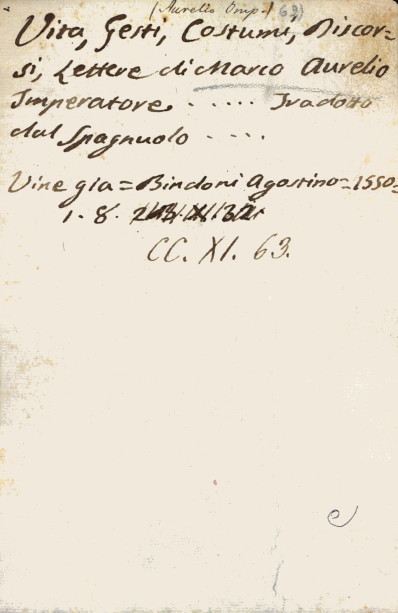 (Aurelio Imp.) 69)
Vita, Gesti, Costumi, Discor=
si, Lettere di Marco Aurelio
Imperatore ...... Tradotto
dal Spagnuolo ....
Vinegia = Bindoni Agostino = 1550=
1. 8.
CC. XI. 63.